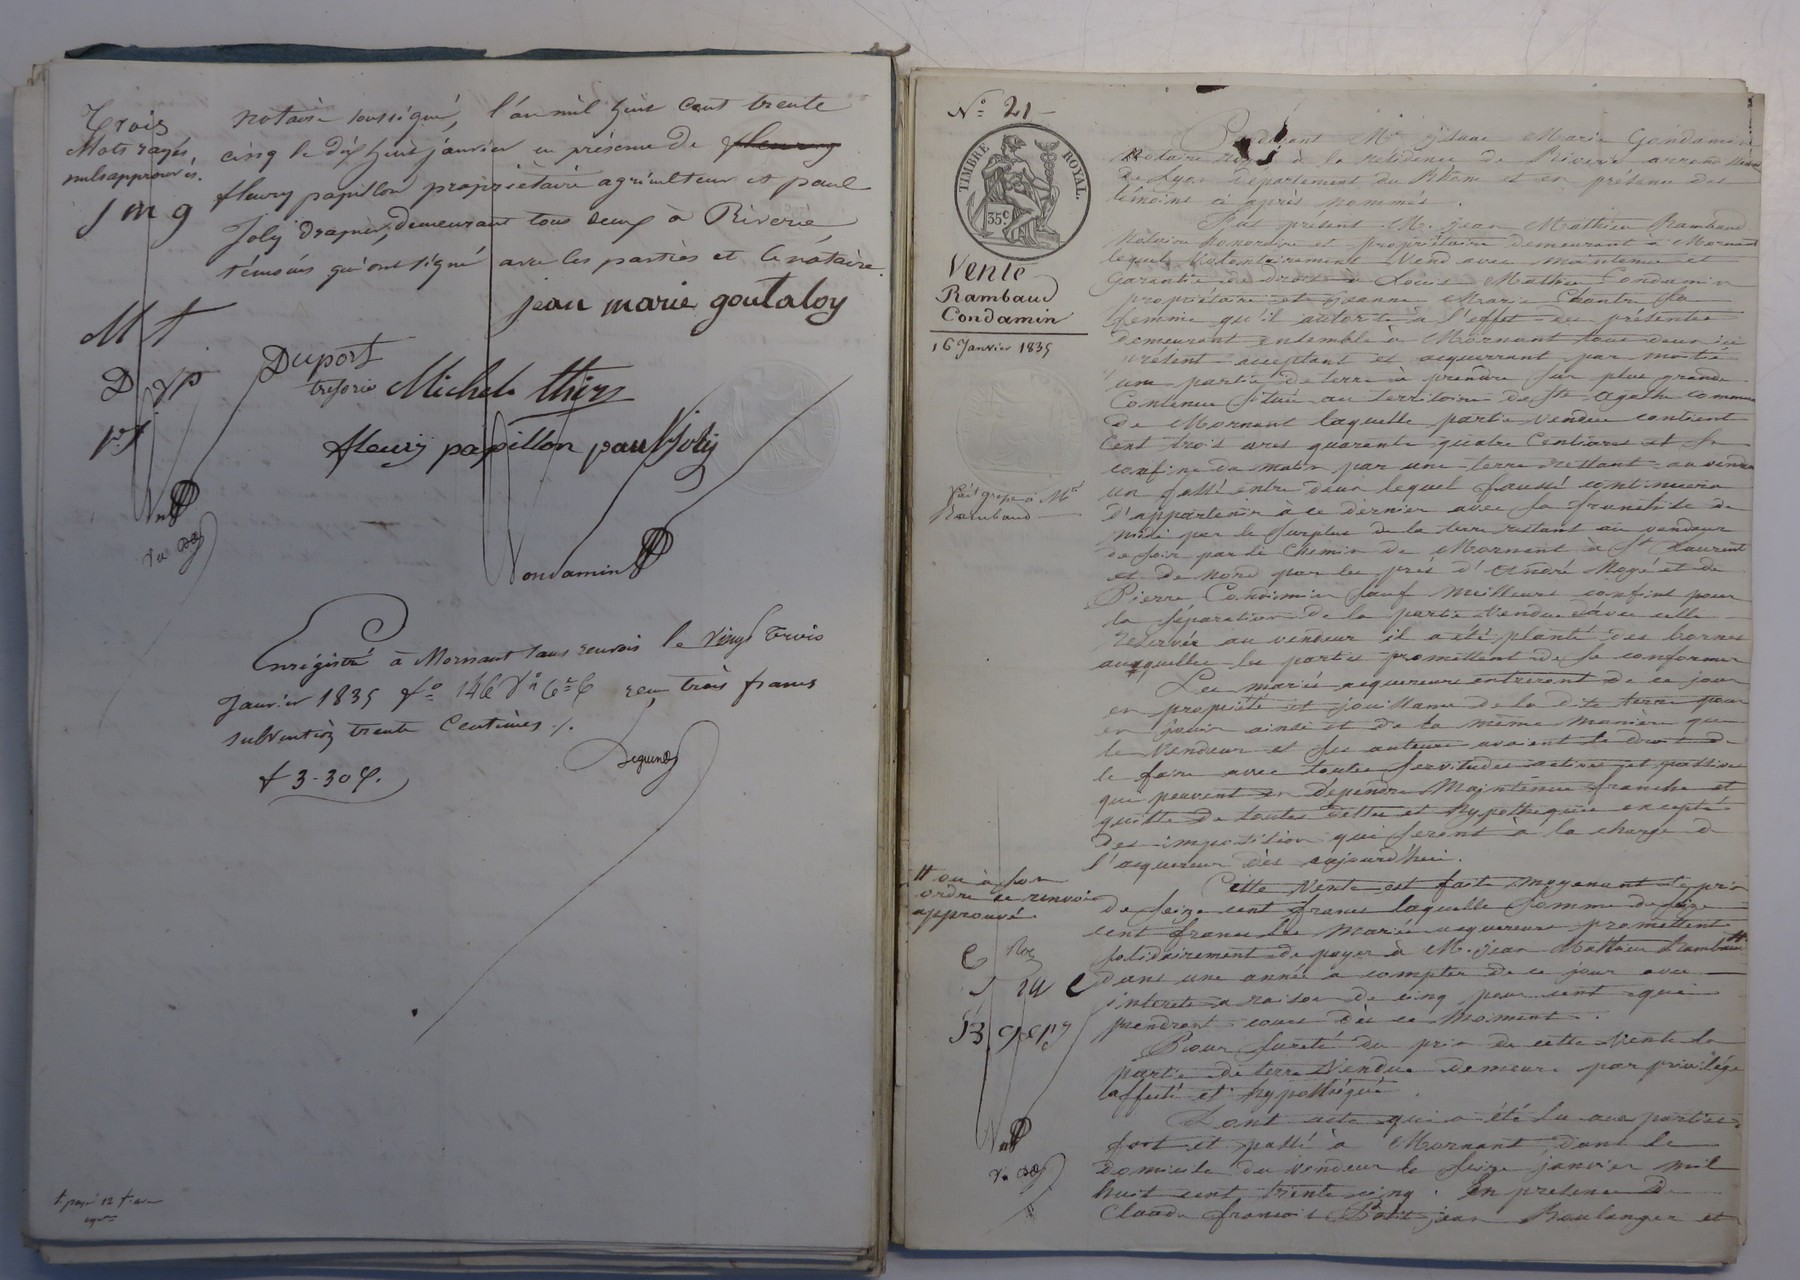 Trois
Mots rayés
nuls approuvés.
J m g
notaire soussigné, l'an mil huit cent trente
cinq le dix huit janvier en présence de fleury
fleury papillon propriétaire agriculteur et paul
Joly drapier, demeurant tous deux à Riverie
témoins qu'ont signé avec les parties et le notaire.
jean marie goutaloy
M t
Duport
D
Michel thiry
fleury papillon paul Joly
Condamin
Enregistré à Mornant sans renvois le vingt trois
Janvier 1835 fo 146 Vo reçu trois francs
subvention trente Centimes ./.
f 3-30 c.
N° 21
TIMBRE ROYAL.
35 c
Vente
Rambaud
Condamin
16 Janvier 1835
fait grosse à Mr
Rambaud
Pardevant Me Marie Condamin
Notaire royal à la résidence de Riverie arrond
de Lyon département du Rhône et en présence des
témoins ci après nommés.
Fut présent M. jean Mathieu Rambaud
Notaire honoraire et propriétaire demeurant à Mornant
lequel volontairement Vend avec maintenue et
garantie de droit à Louis Mathieu Condamin
propriétaire et Jeanne Marie sa
femme qu'il autorise à l'effet des présentes
demeurant ensemble à Mornant tous deux ici
présent acceptant et acquerrant par moitié
une partie de terre à prendre sur plus grande
Contenue située au territoire de Ste Agathe commune
de Mornant laquelle partie vendue contient
Cent trois ares quarente quatre Centiares et se
confine de matin par une terre restant au vendeur
un fossé entre deux lequel fossé continuera
d'appartenir à ce dernier avec sa franchise de
midi par le surplus de la terre restant au vendeur
de soir par le Chemin de Mornant à St Laurent
et de Nord par les prés d'André et de
Pierre Condamin sauf meilleurs confins pour
la séparation de la partie vendue d'avec celle
réservée au vendeur il a été planté des bornes
auxquelles les parties promettent de se conformer
Les mariés acquereurs entreront de ce jour
en propriété et jouissance de la dite terre pour
en jouir ainsi et de la même manière que
le Vendeur et ses auteurs avaient le droit de
le faire avec toutes servitudes actives et passives
qui peuvent en dépendre Maintenue franche et
quitte de toutes dettes et hypotheques excepté
des imposition qui seront à la charge de
l'acquereur dès aujourd'hui.
Cette Vente est faite moyenant le prix
de seize cent francs laquelle somme de seize
cent francs les Mariés acquereurs promettent
solidairement de payer à M. jean Mathieu Rambaud #
dans une année à compter de ce jour avec
interets à raison de cinq pour cent qui
prendront cours dès ce moment.
Pour sureté du prix de cette Vente la
partie de terre Vendue demeure par privilége
affecté et hypothéqué.
Dont acte qui a été lu aux parties
fait et passé à Mornant, dans le
domicile du vendeur le seize janvier mil
huit cent trente cinq. En présence de
Claude françois Petit jean Boulanger et
# ou à son
ordre ce renvoi
approuvé.